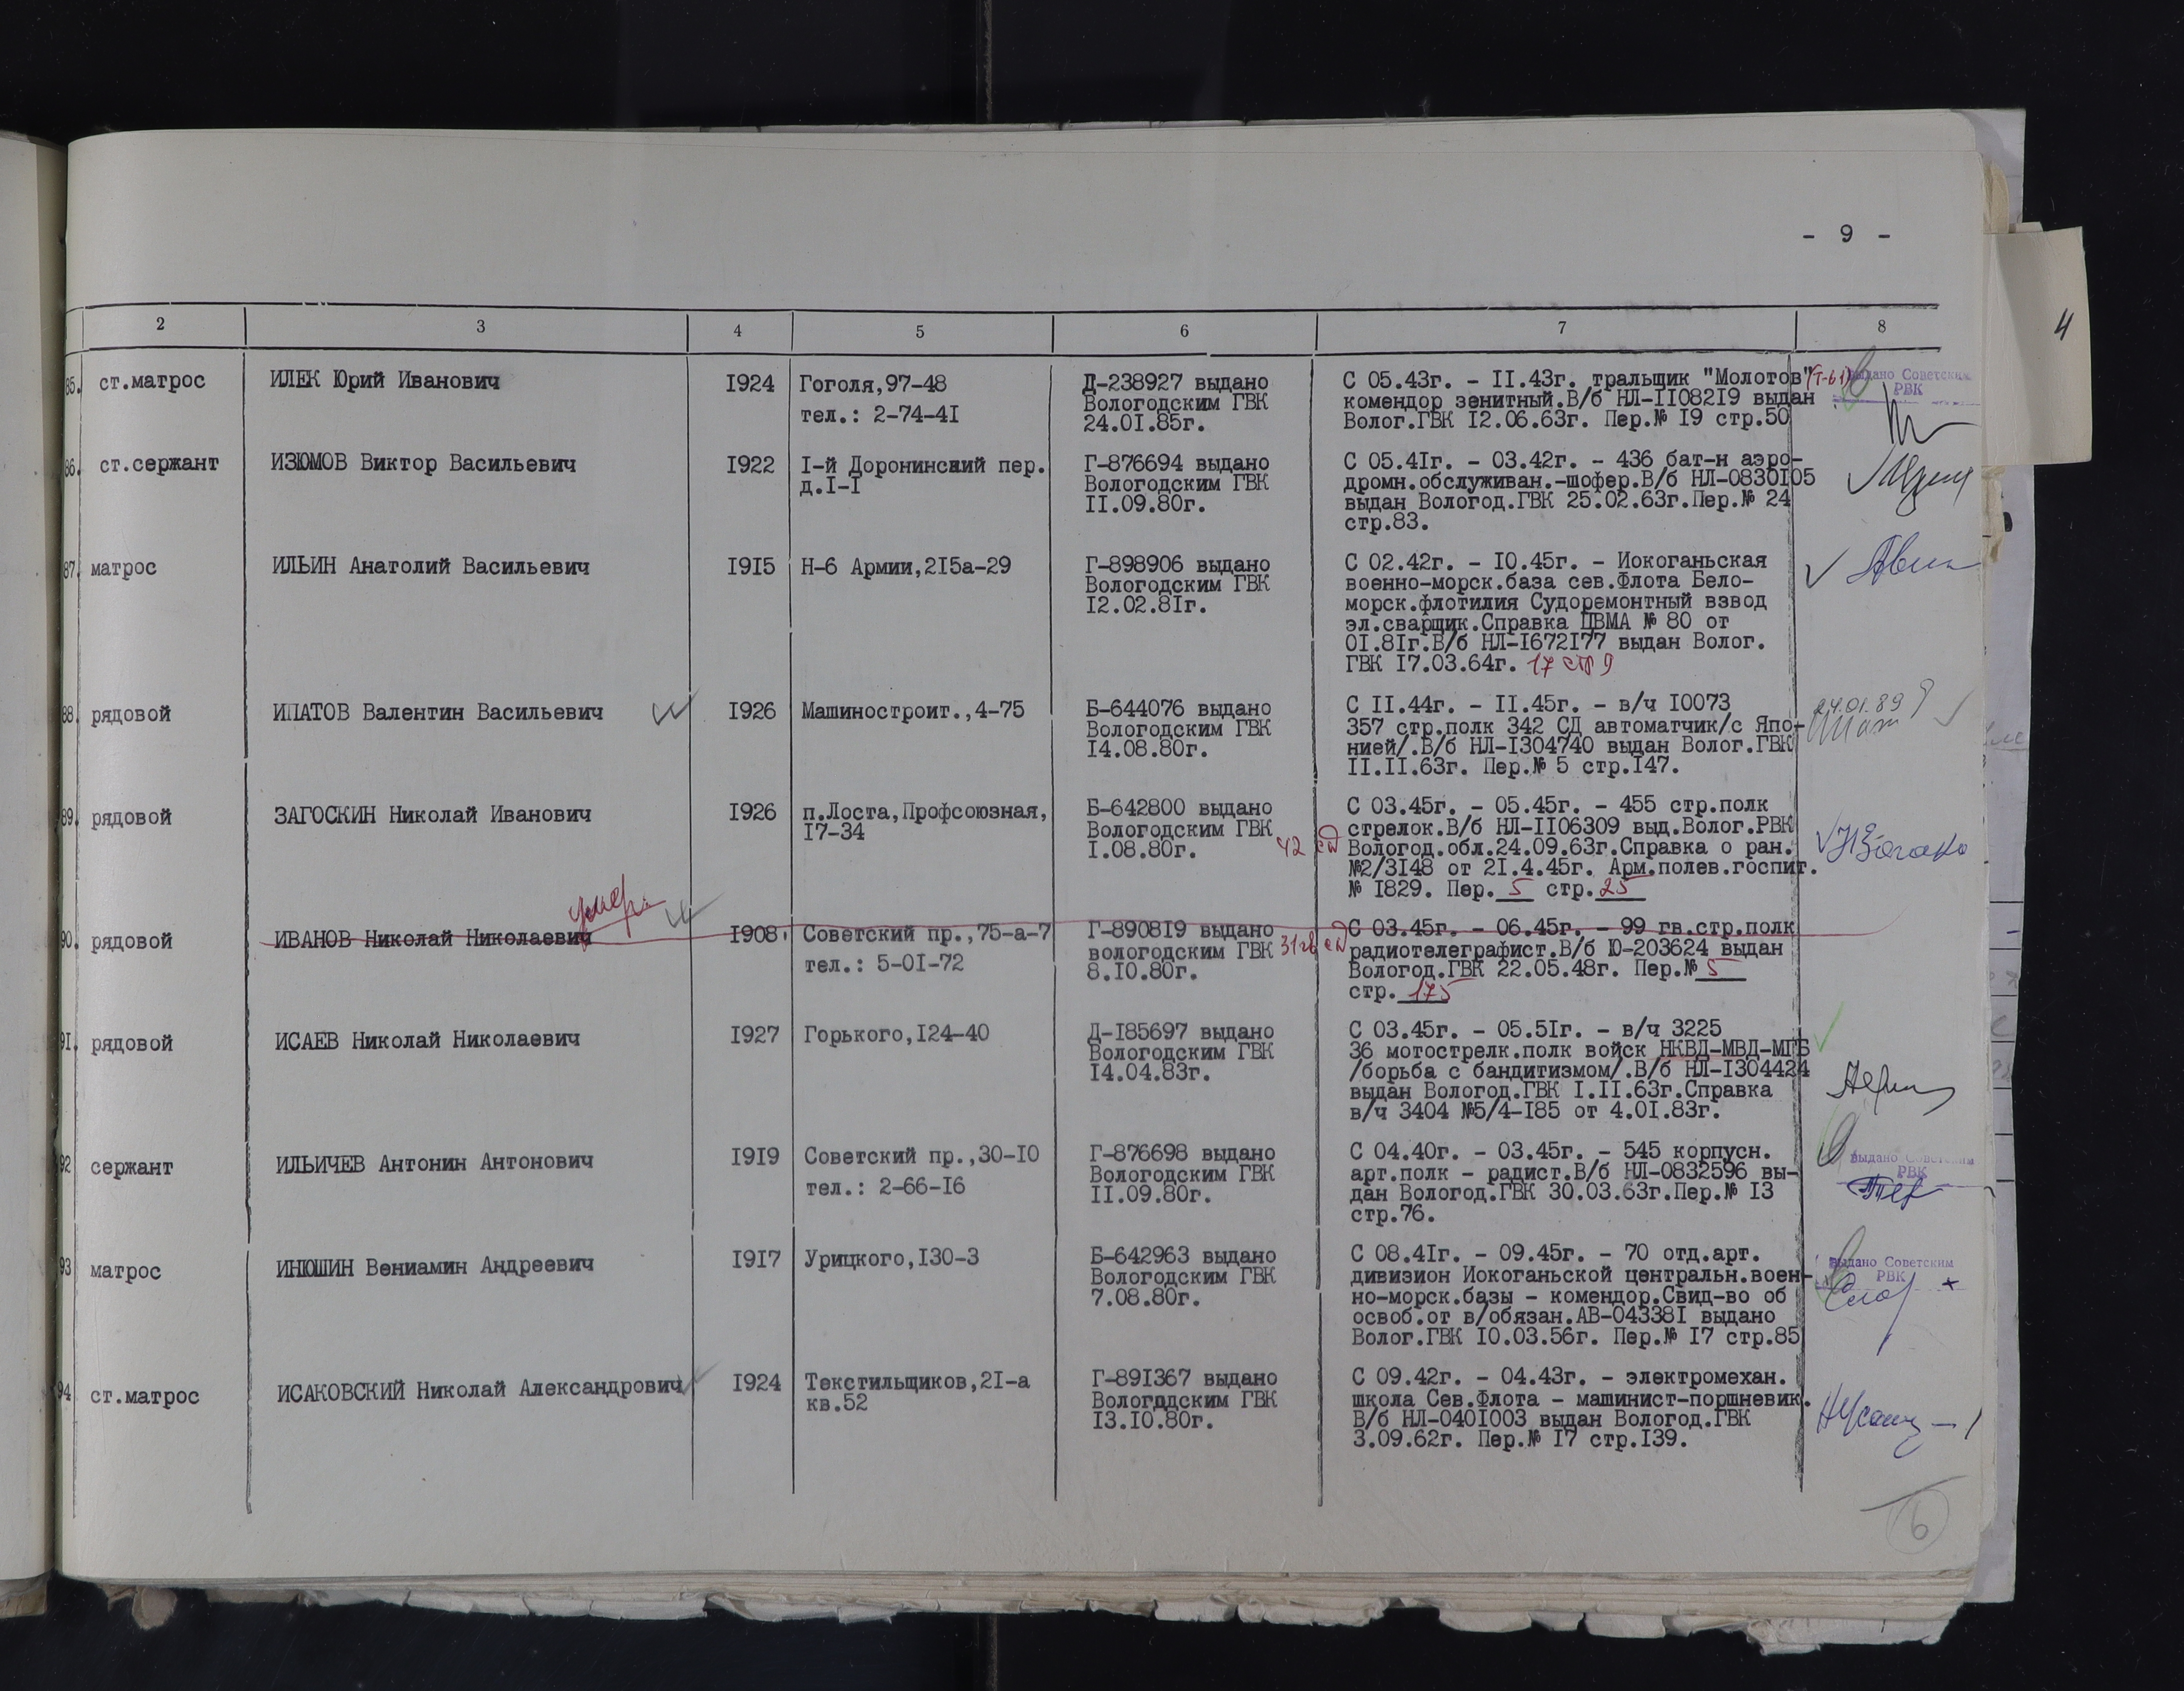 - 9 -
4
2 3 4 5 6 7 8
85. ст.матрос ИЛЕК Юрий Иванович 1924 Гоголя,97-48 Д-238927 выдано С 05.43г. - 11.43г. тральщик "Молотов" (Т-61) выдано Советским
тел.: 2-74-41 Вологодским ГВК комендор зенитный.В/б НЛ-1108219 выдан РВК
24.01.85г. Волог.ГВК 12.06.63г. Пер.№ 19 стр.50
86. ст.сержант ИЗЮМОВ Виктор Васильевич 1922 1-й Доронинский пер. Г-876694 выдано С 05.41г. - 03.42г. - 436 бат-н аэро-
д.1-1 Вологодским ГВК дромн.обслуживан.-шофер.В/б НЛ-0830105
11.09.80г. выдан Вологод.ГВК 25.02.63г.Пер.№ 24
стр.83.
87. матрос ИЛЬИН Анатолий Васильевич 1915 Н-6 Армии,215а-29 Г-898906 выдано С 02.42г. - 10.45г. - Иокоганьская
Вологодским ГВК военно-морск.база сев.Флота Бело-
12.02.81г. морск.флотилия Судоремонтный взвод
эл.сварщик.Справка ЦВМА № 80 от
01.81г.В/б НЛ-1672177 выдан Волог.
ГВК 17.03.64г. 17 стр 9
88. рядовой ИПАТОВ Валентин Васильевич 1926 Машиностроит.,4-75 Б-644076 выдано С 11.44г. - 11.45г. - в/ч 10073 24.01.89
Вологодским ГВК 357 стр.полк 342 СД автоматчик/с Япо-
14.08.80г. нией/.В/б НЛ-1304740 выдан Волог.ГВК
11.11.63г. Пер.№ 5 стр.147.
89. рядовой ЗАГОСКИН Николай Иванович 1926 п.Лоста,Профсоюзная, Б-642800 выдано С 03.45г. - 05.45г. - 455 стр.полк
17-34 Вологодским ГВК стрелок.В/б НЛ-1106309 выд.Волог.РВК
1.08.80г. 42 сд Вологод.обл.24.09.63г.Справка о ран.
№2/3148 от 21.4.45г. Арм.полев.госпит.
№ 1829. Пер. 5 стр. 25
умер
90. рядовой ИВАНОВ Николай Николаевич 1908 Советский пр.,75-а-7 Г-890819 выдано С 03.45г. - 06.45г. - 99 гв.стр.полк
тел.: 5-01-72 вологодским ГВК 31 гв сд радиотелеграфист.В/б Ю-203624 выдан
8.10.80г. Вологод.ГВК 22.05.48г. Пер.№ 5
стр. 175
91. рядовой ИСАЕВ Николай Николаевич 1927 Горького,124-40 Д-185697 выдано С 03.45г. - 05.51г. - в/ч 3225
Вологодским ГВК 36 мотострелк.полк войск НКВД-МВД-МГБ
14.04.83г. /борьба с бандитизмом/.В/б НЛ-1304424
выдан Вологод.ГВК 1.11.63г.Справка
в/ч 3404 №5/4-185 от 4.01.83г.
92 сержант ИЛЬИЧЕВ Антонин Антонович 1919 Советский пр.,30-10 Г-876698 выдано С 04.40г. - 03.45г. - 545 корпусн. выдано Советским
тел.: 2-66-16 Вологодским ГВК арт.полк - радист.В/б НЛ-0832596 вы- РВК
11.09.80г. дан Вологод.ГВК 30.03.63г.Пер.№ 13
стр.76.
93 матрос ИНЮШИН Вениамин Андреевич 1917 Урицкого,130-3 Б-642963 выдано С 08.41г. - 09.45г. - 70 отд.арт. выдано Советским
Вологодским ГВК дивизион Иокоганьской центральн.воен- РВК
7.08.80г. но-морск.базы - комендор.Свид-во об
освоб.от в/обязан.АВ-043381 выдано
Волог.ГВК 10.03.56г. Пер.№ 17 стр.85
94 ст.матрос ИСАКОВСКИЙ Николай Александрович 1924 Текстильщиков,21-а Г-891367 выдано С 09.42г. - 04.43г. - электромехан.
кв.52 Вологодским ГВК школа Сев.Флота - машинист-поршневик.
13.10.80г. В/б НЛ-0401003 выдан Вологод.ГВК
3.09.62г. Пер.№ 17 стр.139.
6